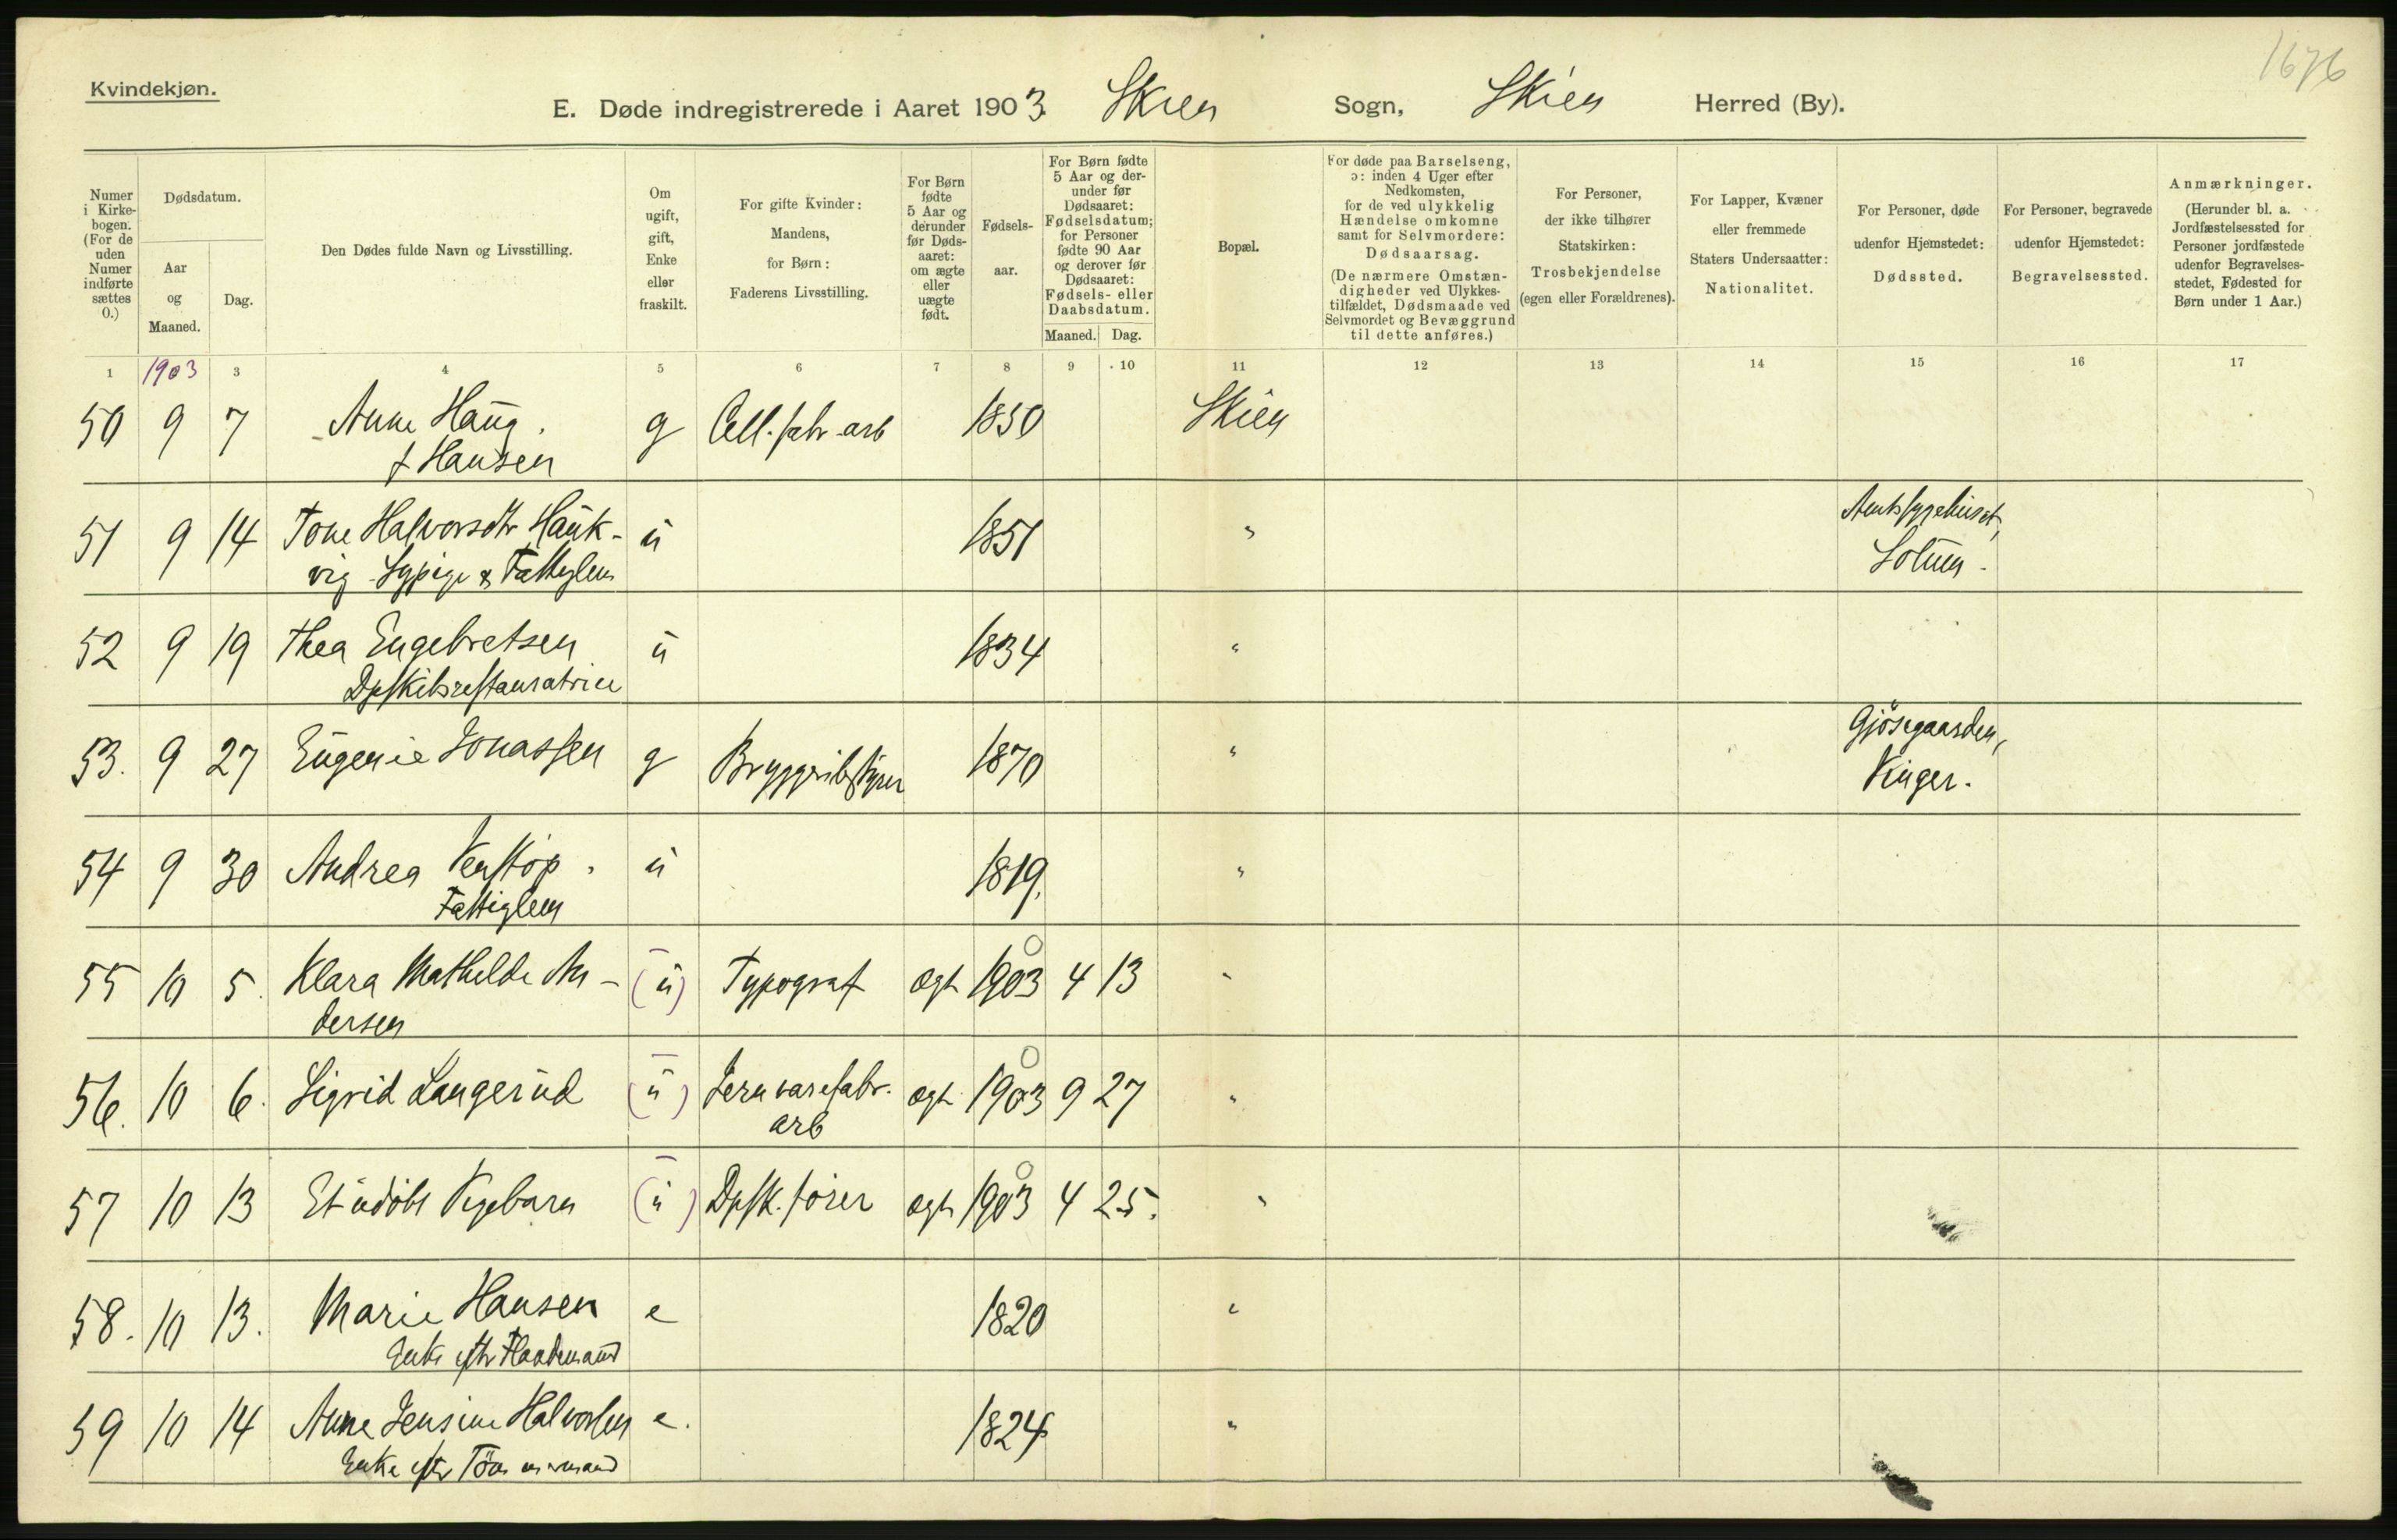 1676
Kvindekjøn.
E. Døde indregistrerede i Aaret 1903 Skien Sogn, Skien Herred (By).
Numer
i Kirke-
bogen.
(For de
uden
Numer
indførte
sættes
0.)
Dødsdatum.
Aar
og
Maaned.
Dag.
Den Dødes fulde Navn og Livsstilling.
Om
ugift,
gift,
Enke
eller
fraskilt.
For gifte Kvinder:
Mandens,
for Børn:
Faderens Livsstilling.
For Børn
fødte
5 Aar og
derunder
før Døds-
aaret:
om ægte
eller
uægte
født.
Fødsels-
aar.
For Børn fødte
5 Aar og der-
under før
Dødsaaret:
Fødselsdatum;
for Personer
fødte 90 Aar
og derover før
Dødsaaret:
Fødsels- eller
Daabsdatum.
Maaned. Dag.
Bopæl.
For døde paa Barselseng,
ɔ: inden 4 Uger efter
Nedkomsten,
for de ved ulykkelig
Hændelse omkomne
samt for Selvmordere:
Dødsaarsag.
(De nærmere Omstæn-
digheder ved Ulykkes-
tilfældet, Dødsmaade ved
Selvmordet og Bevæggrund
til dette anføres.)
For Personer,
der ikke tilhører
Statskirken:
Trosbekjendelse
(egen eller Forældrenes).
For Lapper, Kvæner
eller fremmede
Staters Undersaatter:
Nationalitet.
For Personer, døde
udenfor Hjemstedet:
Dødssted.
For Personer, begravede
udenfor Hjemstedet:
Begravelsessted.
Anmærkninger.
(Herunder bl. a.
Jordfæstelsessted for
Personer jordfæstede
udenfor Begravelses-
stedet, Fødested for
Børn under 1 Aar.)
1 1903 3 4 5 6 7 8 9 10 11 12 13 14 15 16 17
50 9 7 Anne Haug. g Cell. fabr-arb 1850 Skien
f Hansen
51 9 14 Tone Halvorsdtr Hauk- u 1851 " Amtssygehuset,
vig Sypige & Fattiglem Solum.
52 9 19 Thea Engebretsen u 1834 "
Dpskibsrestauratrice
53. 9 27 Eugenie Jonassen g Bryggeribestyrer 1870 " Gjösegaarden,
Vinger.
54 9 30 Andrea Venstøp. u 1819. "
Fattiglem
55 10 5. Klara Mathilde An- (u) Typograf ægt 1903 4 13 "
dersen
56. 10 6. Sigrid Langerud (u) Jernvarefabr. ægt 1903 9 27 "
arb
57 10 13 Et udöbt Pigebarn (u) Dpsk.fører ægt 1903 4 25. "
58. 10 13. Marie Hansen e 1820 "
Enke eftr
59 10 14 Anne Jensine Halvorsen e. 1824 "
Enke eftr Tömmermand